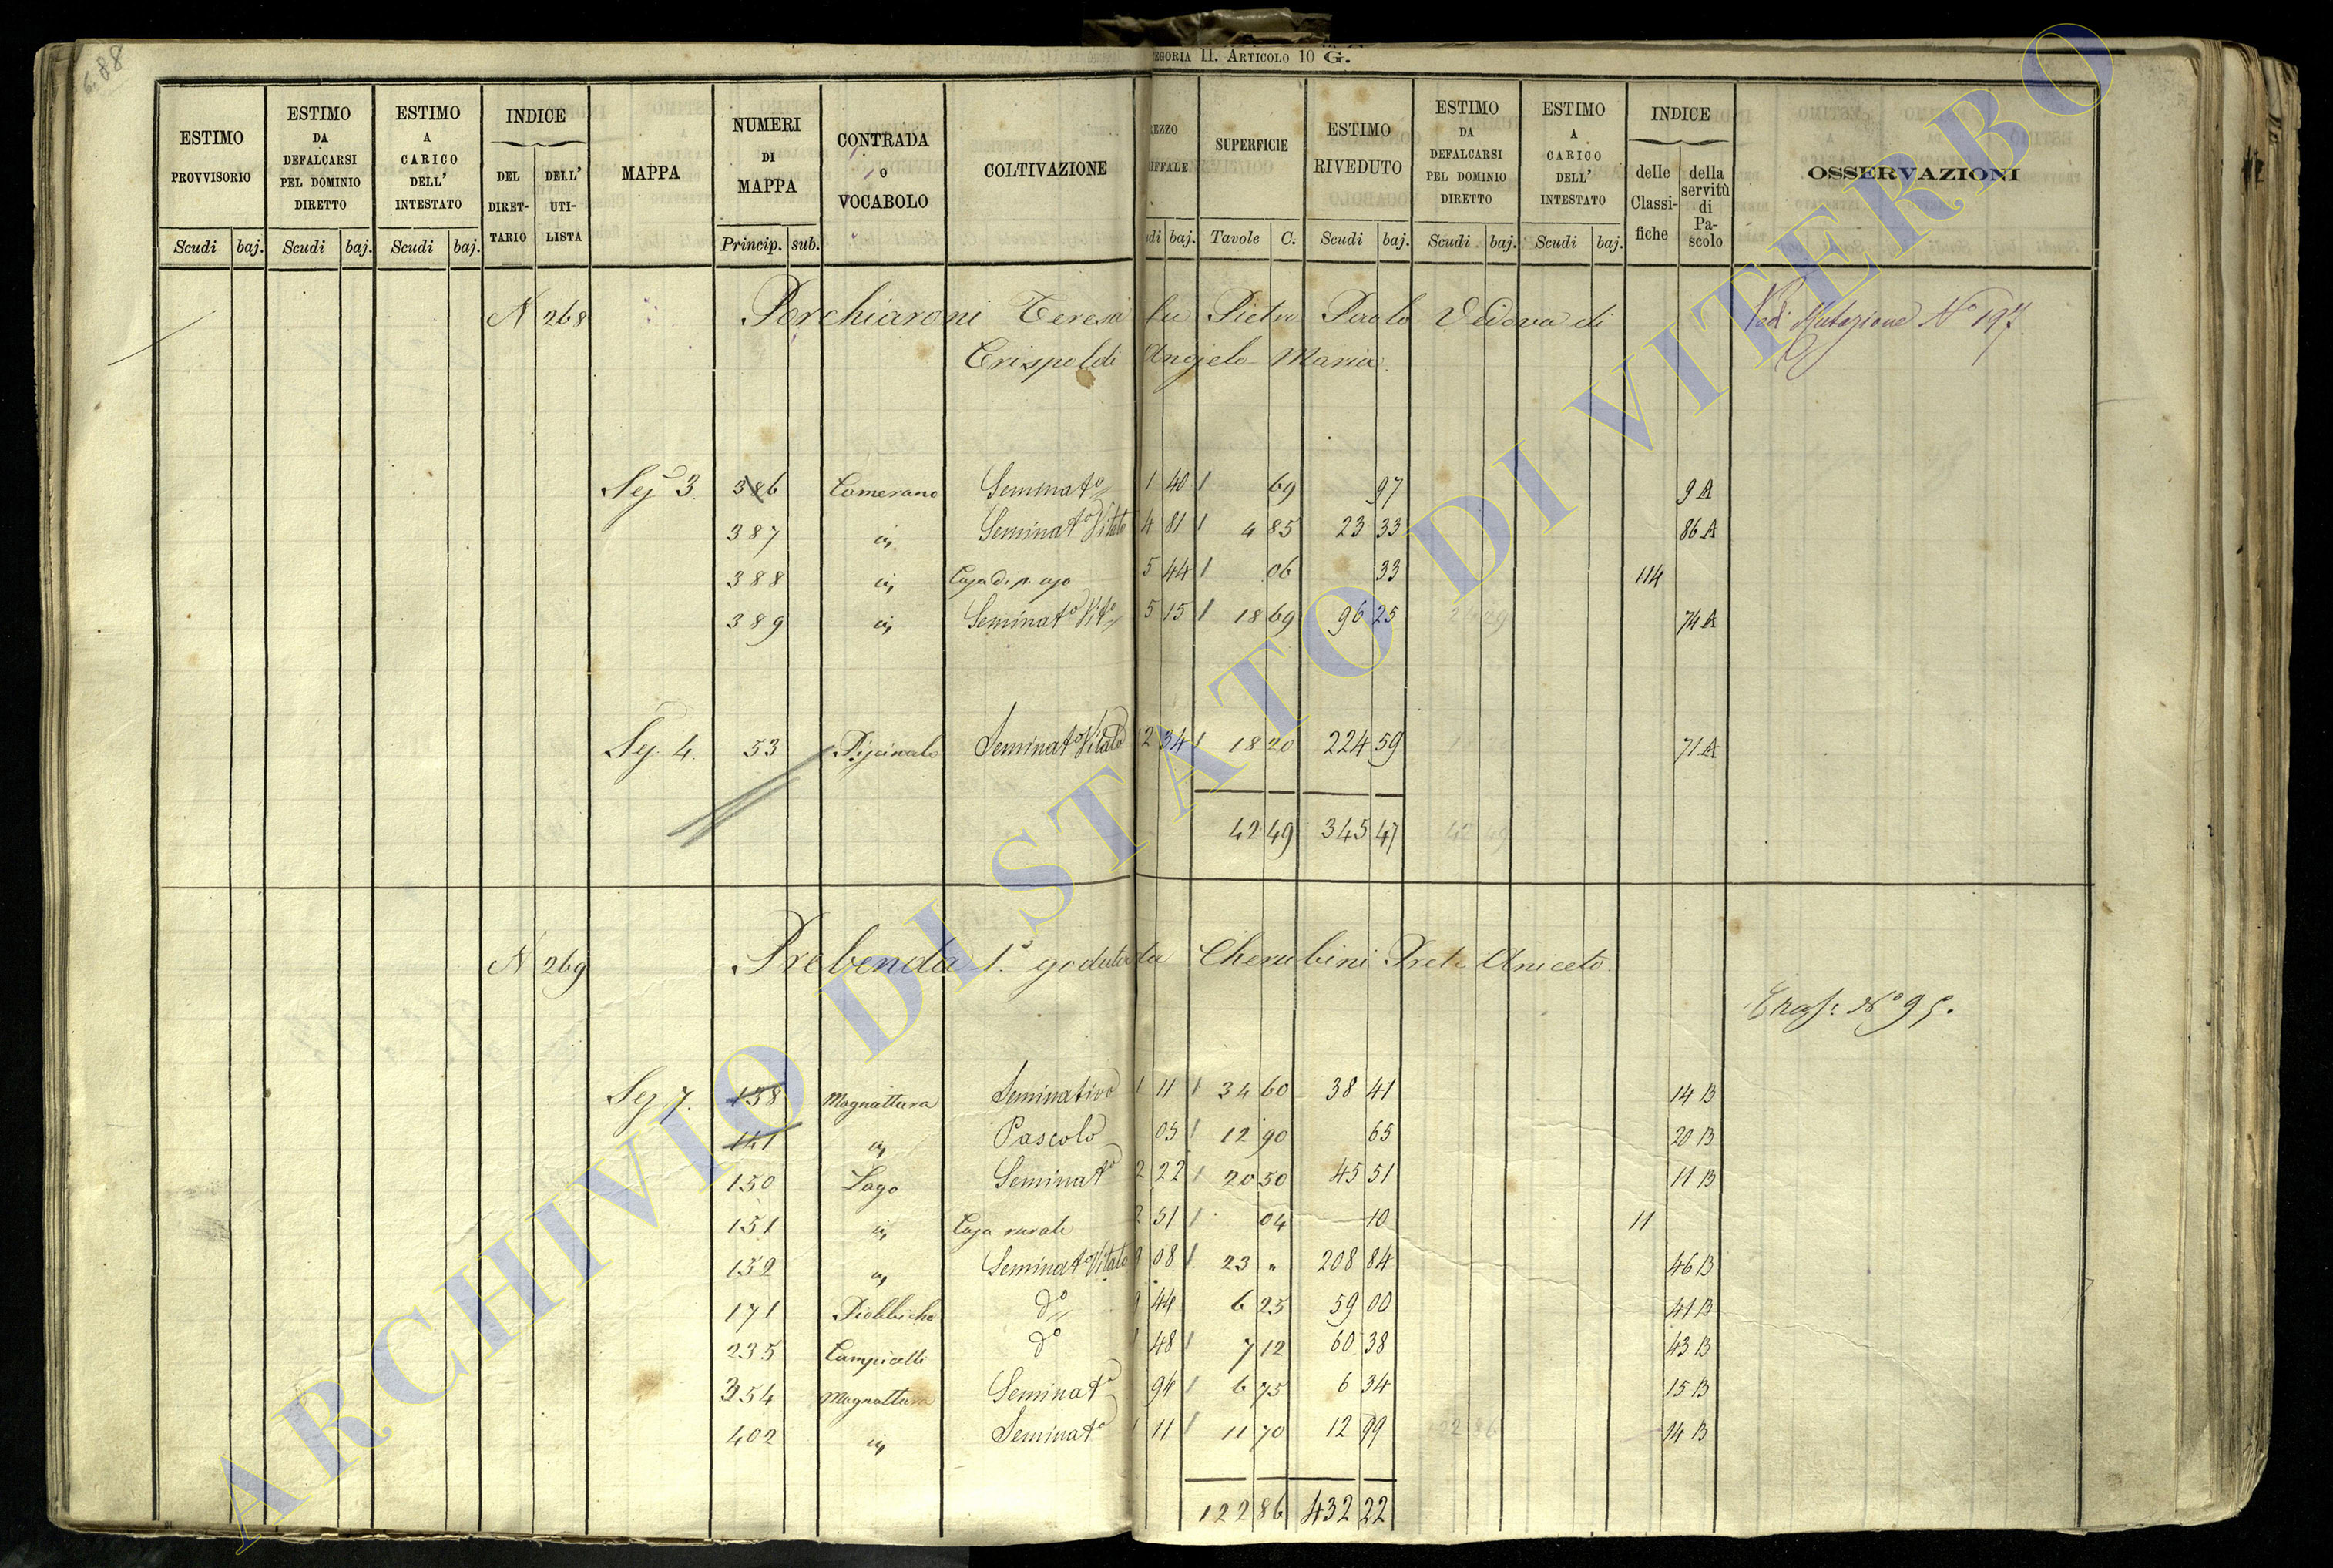 688
EGORIA II. ARTICOLO 10 G.
ESTIMO PROVVISORIO Scudi baj.
ESTIMO DA DEFALCARSI PEL DOMINIO DIRETTO Scudi baj.
ESTIMO A CARICO DELL' INTESTATO Scudi baj.
INDICE DEL DIRET- TARIO DELL' UTI- LISTA
MAPPA
NUMERI DI MAPPA Princip. sub.
CONTRADA o VOCABOLO
COLTIVAZIONE
REZZO IFFALE di baj.
SUPERFICIE Tavole C.
ESTIMO RIVEDUTO Scudi baj.
ESTIMO DA DEFALCARSI PEL DOMINIO DIRETTO Scudi baj.
ESTIMO A CARICO DELL' INTESTATO Scudi baj.
INDICE delle Classi- fiche della servitù di Pa- scolo
OSSERVAZIONI
N 268 Porchiaroni Teresa fu Pietro Paolo Vedova di Vedi Mutazione N° 197.
Crispoldi Angelo Maria.
Sez 3. 386 Camerano Seminato 1 40 69 97 9 A
387 id Seminato Vitato 4 81 4 85 23 33 86 A
388 id Casa di p. uso 5 44 06 33 114
389 id Seminato Vito 5 15 18 69 96 25 74 A
Sez. 4. 53 Seminato Vitato 12 34 18 20 224 59 71 A
42 49 345 47
N 269 Prebenda 1.a goduta da Cherubini Prete Aniceto.
N° 95.
Sez 7. 138 Magnattura Seminativo 1 11 34 60 38 41 14 B
141 id Pascolo 05 12 90 65 20 B
150 Lago Seminato 2 22 20 50 45 51 11 B
151 id Casa rurale 2 51 04 10 11
152 id Seminato Vitato 9 08 23 " 208 84 46 B
171 d° 9 44 6 25 59 00 41 B
235 Campicelli d° 48 7 12 60 38 43 B
354 Magnattura Seminato 94 6 75 6 34 15 B
402 id Seminato 1 11 11 70 12 99 14 B
122 86 432 22
ARCHIVIO DI STATO DI VITERBO